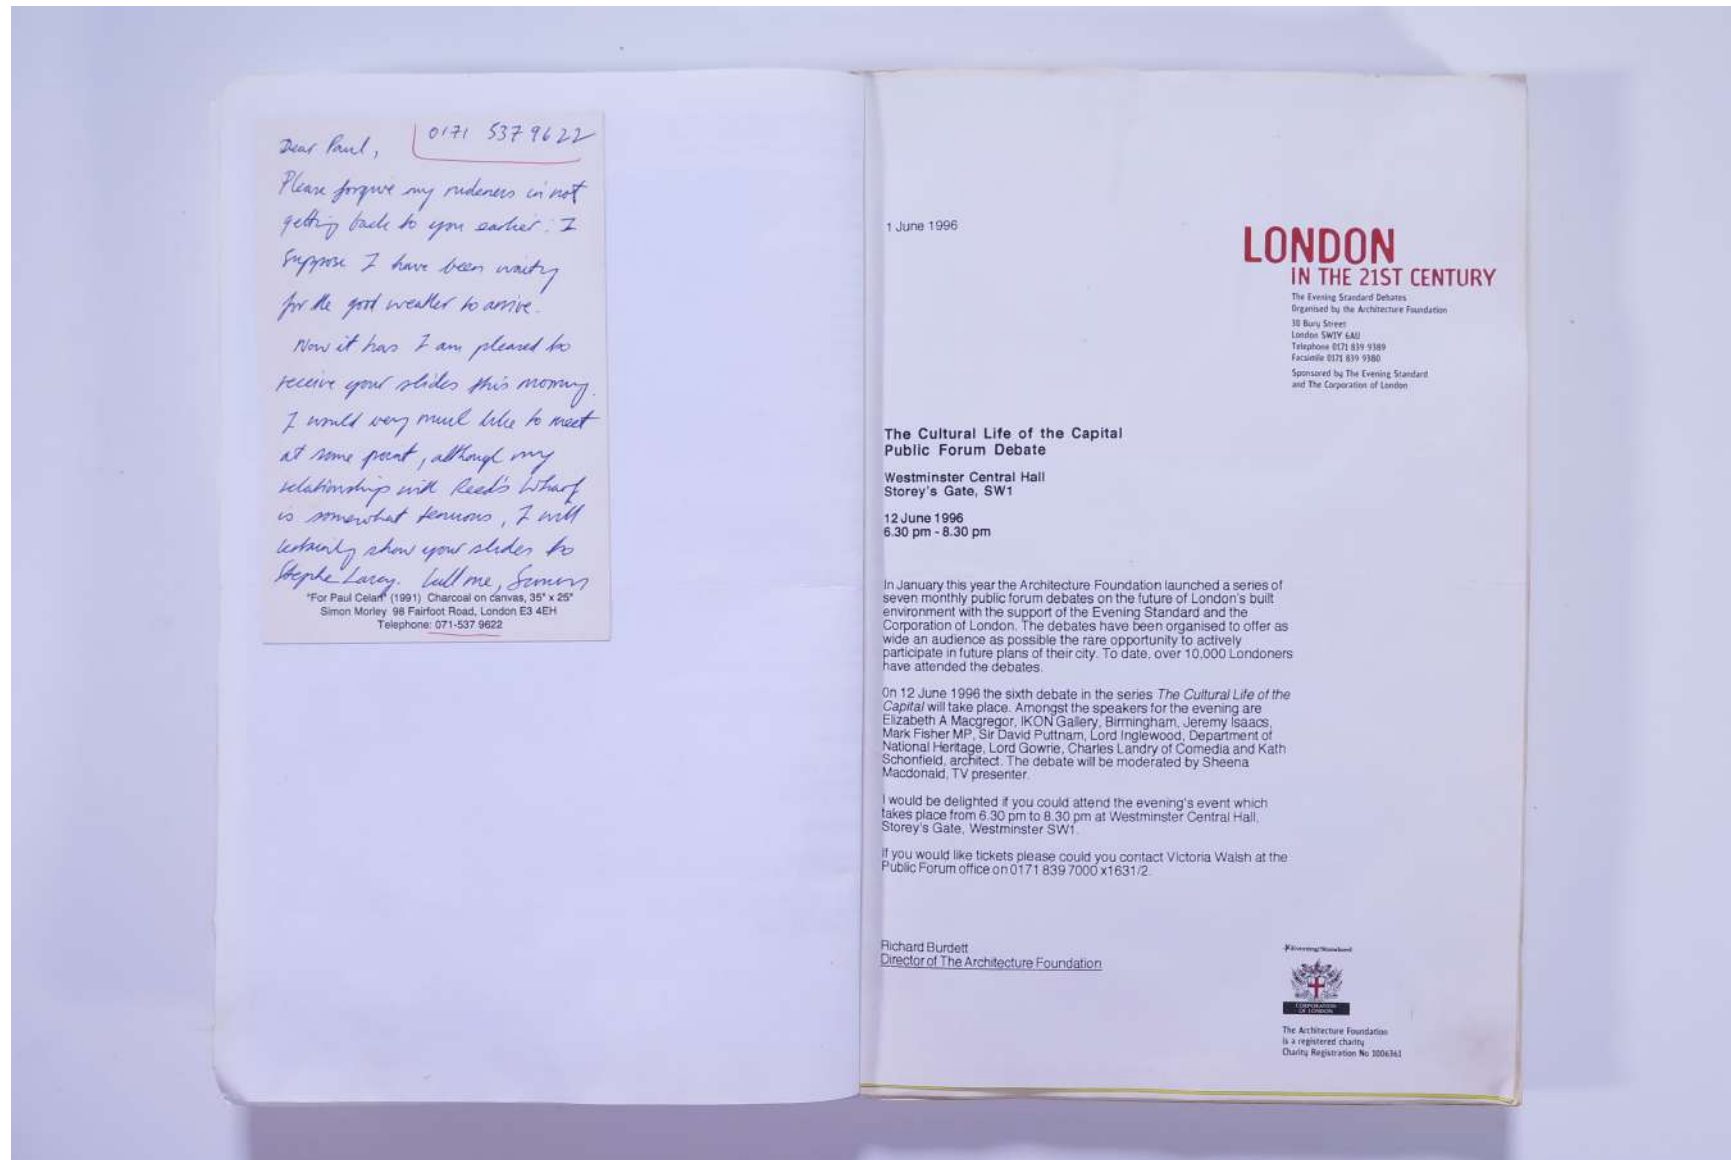 0171 537 9622
Dear Paul,
Please forgive my rudeness in not
getting back to you earlier: I
suppose I have been waiting
for the good weather to arrive.
Now it has I am pleased to
receive your slides this morning.
I would very much like to meet
at some point, although my
relationship with Reed's Wharf
is somewhat tenuous, I will
certainly show your slides to
Stephe Lacey. Call me, Simon
"For Paul Celan" (1991) Charcoal on canvas, 35" x 25"
Simon Morley 98 Fairfoot Road, London E3 4EH
Telephone: 071-537 9622
1 June 1996
LONDON
IN THE 21ST CENTURY
The Evening Standard Debates
Organised by the Architecture Foundation
30 Bury Street
London SW1Y 6AU
Telephone 0171 839 9389
Facsimile 0171 839 9380
Sponsored by The Evening Standard
and The Corporation of London
The Cultural Life of the Capital
Public Forum Debate
Westminster Central Hall
Storey's Gate, SW1
12 June 1996
6.30 pm - 8.30 pm
In January this year the Architecture Foundation launched a series of
seven monthly public forum debates on the future of London's built
environment with the support of the Evening Standard and the
Corporation of London. The debates have been organised to offer as
wide an audience as possible the rare opportunity to actively
participate in future plans of their city. To date, over 10,000 Londoners
have attended the debates.
On 12 June 1996 the sixth debate in the series The Cultural Life of the
Capital will take place. Amongst the speakers for the evening are
Elizabeth A Macgregor, IKON Gallery, Birmingham, Jeremy Isaacs,
Mark Fisher MP, Sir David Puttnam, Lord Inglewood, Department of
National Heritage, Lord Gowrie, Charles Landry of Comedia and Kath
Schonfield, architect. The debate will be moderated by Sheena
Macdonald, TV presenter.
I would be delighted if you could attend the evening's event which
takes place from 6.30 pm to 8.30 pm at Westminster Central Hall,
Storey's Gate, Westminster SW1.
If you would like tickets please could you contact Victoria Walsh at the
Public Forum office on 0171 839 7000 x1631/2.
Richard Burdett
Director of The Architecture Foundation
Evening Standard
CORPORATION
OF LONDON
The Architecture Foundation
is a registered charity
Charity Registration No 1006361